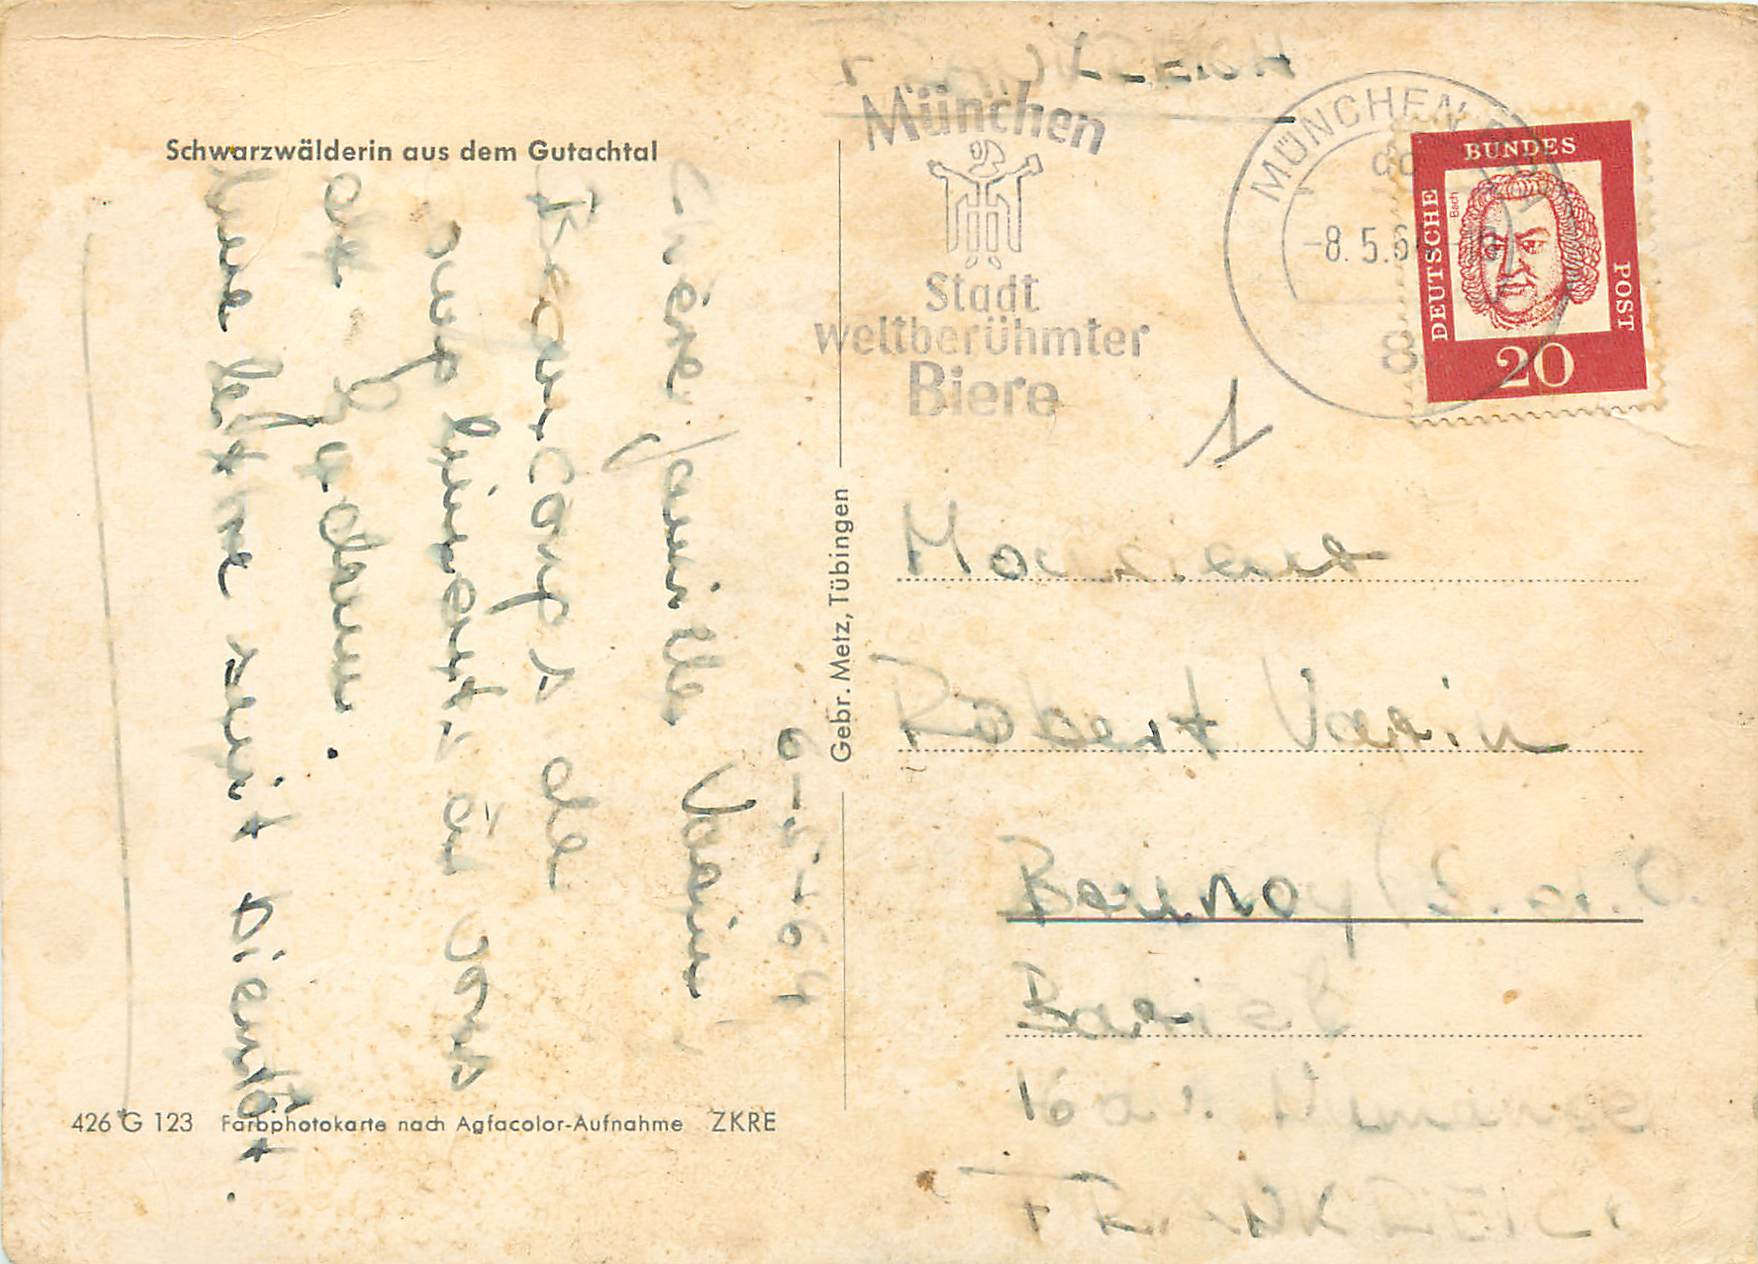 Schwarzwälderin aus dem Gutachtal
6-5-64
Chère famille Varin,
Beaucoups de
compliments à vous
de
Une lettre suit bientôt.
426 G 123 Farbphotokarte nach Agfacolor-Aufnahme ZKRE
Gebr. Metz, Tübingen
FRANKREICH
München
Stadt
weltberühmter
Biere
MÜNCHEN
-8.5.6
8
DEUTSCHE
BUNDES
POST
Bach
20
1
Monsieur
Robert Varin
Bernoy S. et. O.
16
FRANKREICH